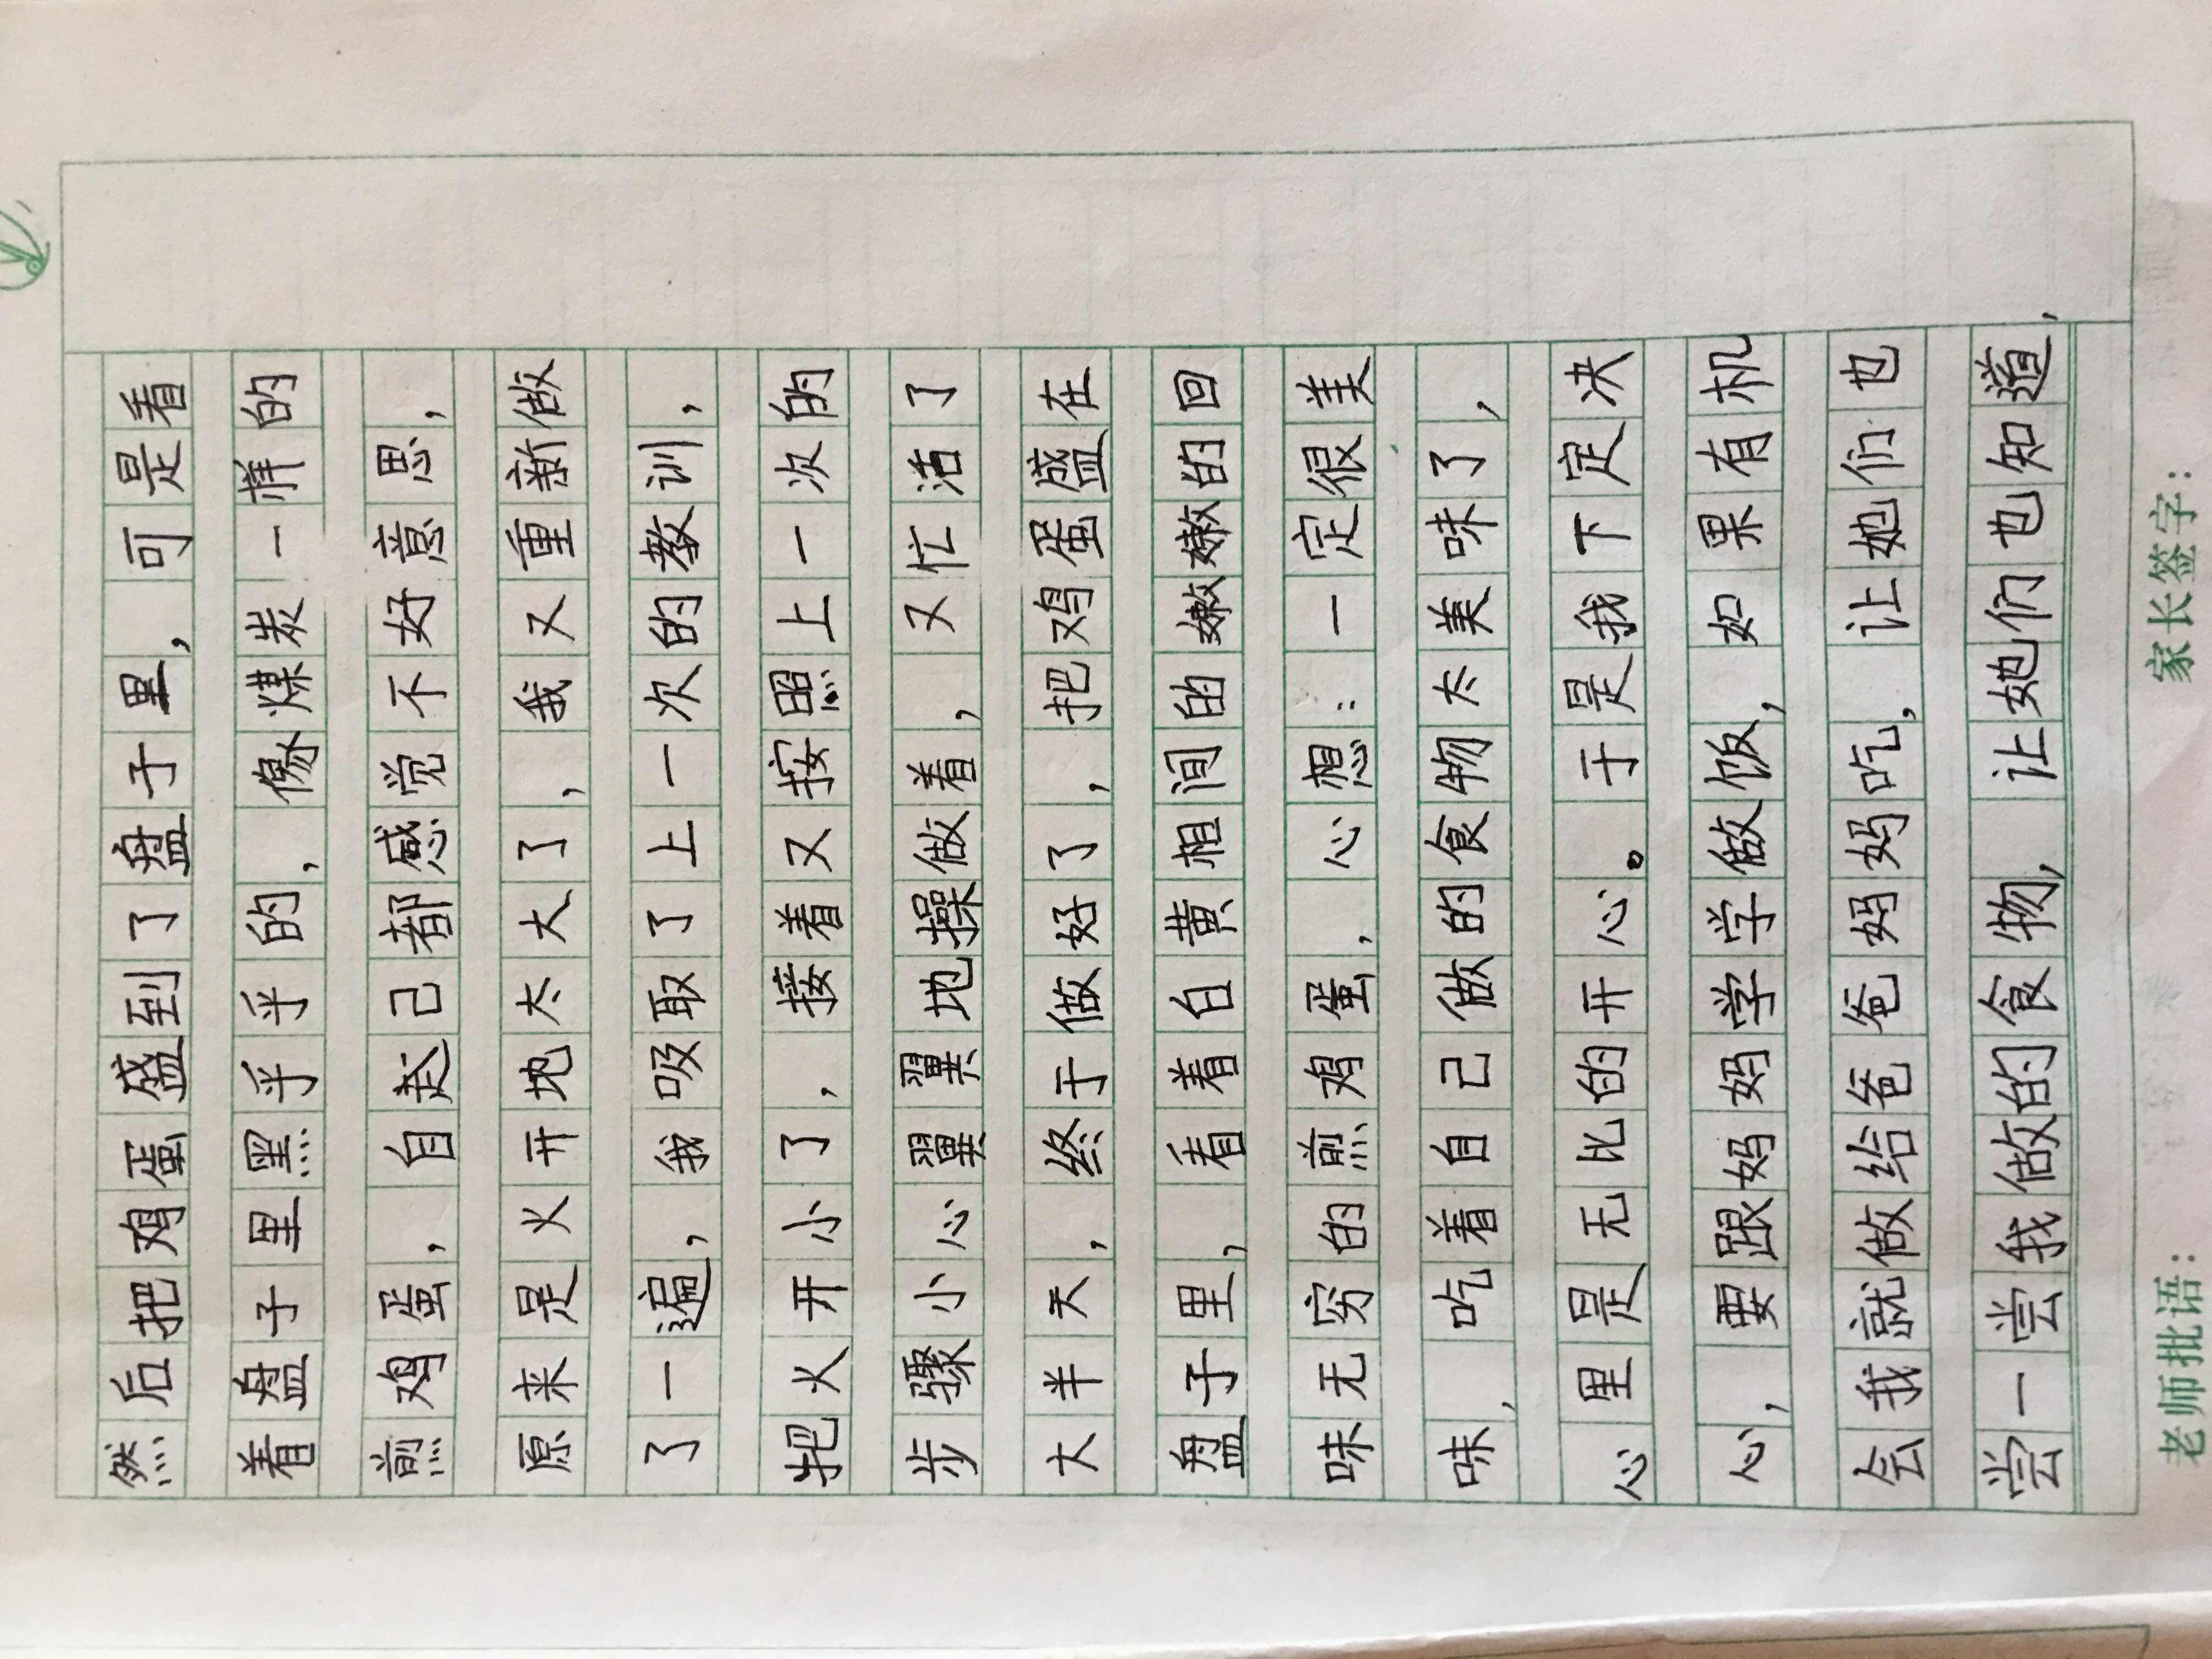 然后把鸡蛋盛到了盘子里，可是看
着盘子里黑乎乎的，像煤炭一样的
煎鸡蛋，自己都感觉不好意思，
原来是火开地太大了，我又重新做
了一遍，我吸取了上一次的教训，
把火开小了，接着又按照上一次的
步骤小心翼翼地操做着，又忙活了
大半天，终于做好了，把鸡蛋盛在
盘子里，看着白黄相间的嫩嫩的回
味无穷的煎鸡蛋，心想：一定很美
味，吃着自己做的食物太美味了，
心里是无比的开心。于是我下定决
心，要跟妈妈学学做饭，如果有机
会我就做给爸爸妈妈吃，让她们也
尝一尝我做的食物，让她们也知道，
老师批语：
家长签字：